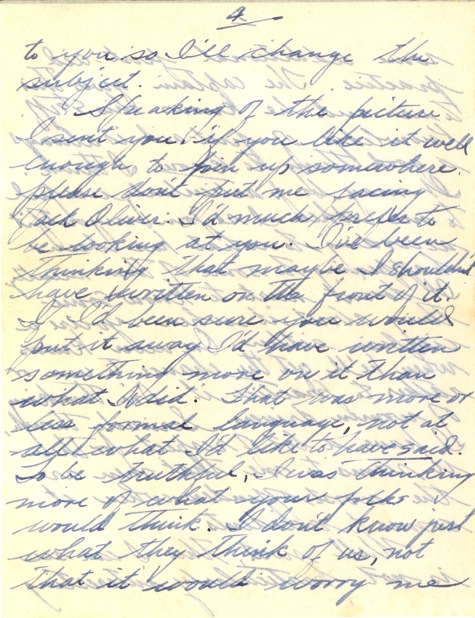 4
to you so I'll change the
subject.
Speaking of the picture
I sent you: if you like it well
enough to pin up somewhere
please don't put me facing
Oliver. I'd much prefer to
be looking at you. I've been
thinking that maybe I shouldn't
have written on the front of it.
If I'd been sure you would
put it away I'd have written
something more on it than
what I did. That was more or
less formal language, not at
all what I'd like to have said.
To be truthful, I was thinking
more of what your folks
would think. I don't know just
what they think of us, not
that it would worry me